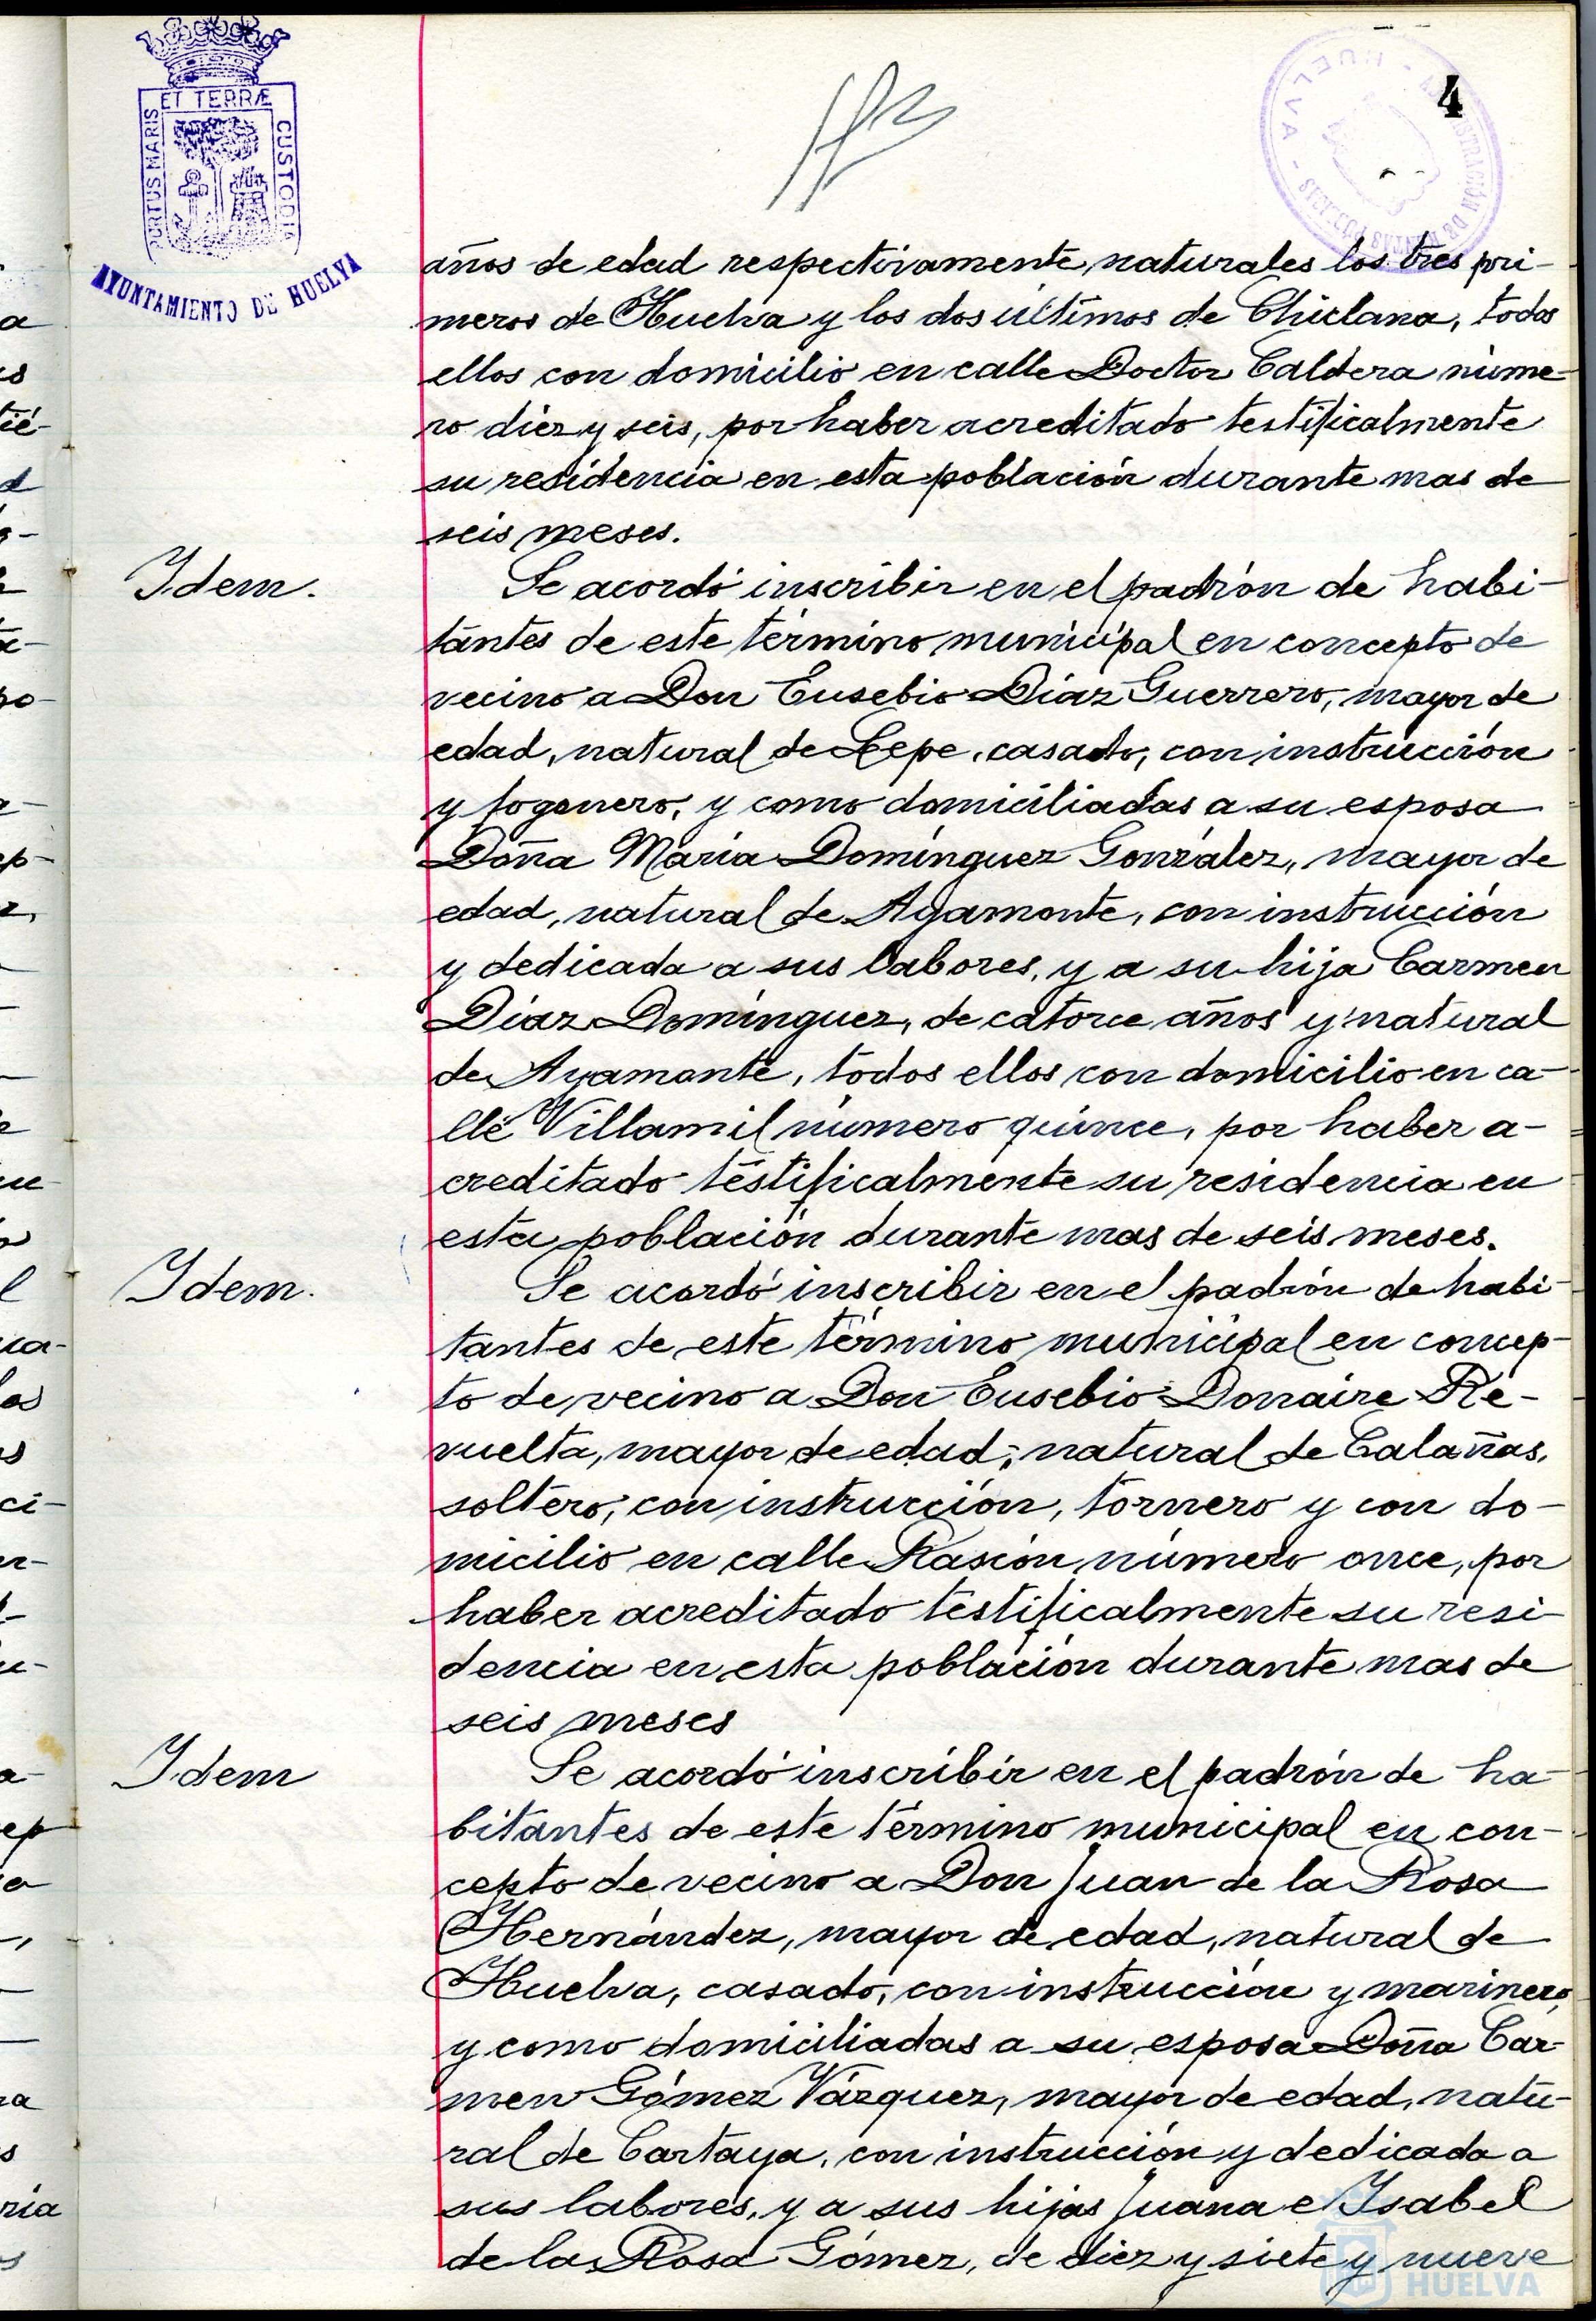 ET TERRÆ
PORTUS MARIS
CUSTODIA
AYUNTAMIENTO DE HUELVA
4
HUELVA
años de edad respectivamente, naturales los tres pri-
meros de Huelva y los dos últimos de Chiclana, todos
ellos con domicilio en calle Doctor Caldera núme-
ro diez y seis, por haber acreditado testificalmente
su residencia en esta población durante mas de
seis meses.
Idem.
Se acordó inscribir en el padrón de habi-
tantes de este término municipal en concepto de
vecino a Don Eusebio Díaz Guerrero, mayor de
edad, natural de Lepe, casado, con instrucción
y fogonero, y como domiciliadas a su esposa
Doña María Domínguez González, mayor de
edad, natural de Ayamonte, con instrucción
y dedicada a sus labores, y a su hija Carmen
Díaz Domínguez, de catorce años y natural
de Ayamonte, todos ellos con domicilio en ca-
lle Villamil número quince, por haber a-
creditado testificalmente su residencia en
esta población durante mas de seis meses.
Idem.
Se acordó inscribir en el padrón de habi-
tantes de este término municipal en concep-
to de vecino a Don Eusebio Donaire Re-
vuelta, mayor de edad, natural de Calañas,
soltero, con instrucción, tornero y con do-
micilio en calle Rascón, número once, por
haber acreditado testificalmente su resi-
dencia en esta población durante mas de
seis meses
Idem
Se acordó inscribir en el padrón de ha-
bitantes de este término municipal en con-
cepto de vecino a Don Juan de la Rosa
Hernández, mayor de edad, natural de
Huelva, casado, con instrucción y marinero,
y como domiciliadas a su esposa Doña Car-
men Gómez Vázquez, mayor de edad, natu-
ral de Cartaya, con instrucción y dedicada a
sus labores, y a sus hijas Juana e Isabel
de la Rosa Gómez, de diez y siete y nueve
HUELVA